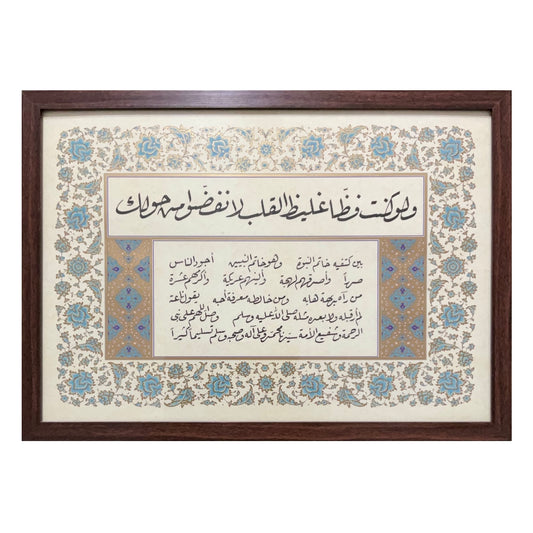 ولو كنت فظّا غليظ القلب لانفضّوا من حولك
بين كتفيه خاتم النبوة وهو خاتم النبيين أجود الناس
صدراً وأصدقهم لهجة وألينهم عريكة وأكرمهم عشرة
من رآه بديهة هابه ومن خالطه معرفة أحبه يقول ناعته
لم أر قبله ولا بعده مثله صلى الله عليه وسلم وصل اللهم على نبي
الرحمة وشفيع الأمة سيدنا محمد وعلى آله وصحبه وسلم تسليما كثيراً